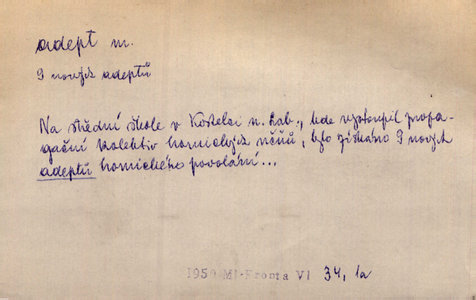 adept m.
9 nových adeptů
Na střední škole v Kostelci n. Lab., kde vystoupil propa-
gační kolektiv hornických učňů, bylo získáno 9 nových
adeptů hornického povolání...
1950 Ml.Fronta VI 34, 1a